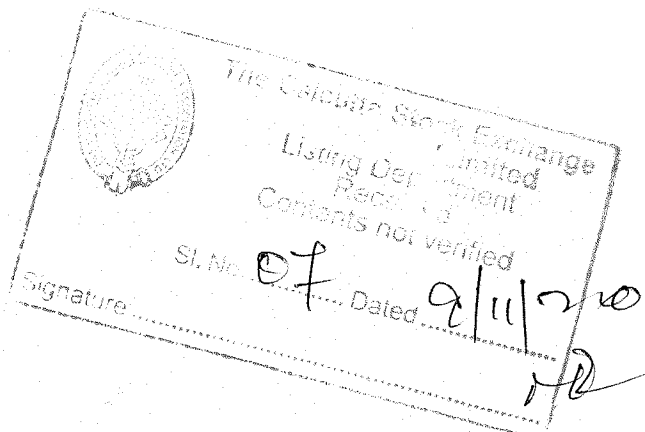 The Calcutta Stock Exchange
Limited
Listing Department
Received
Contents not verified
Sl. No. 07 Dated 9/11/2020
Signature